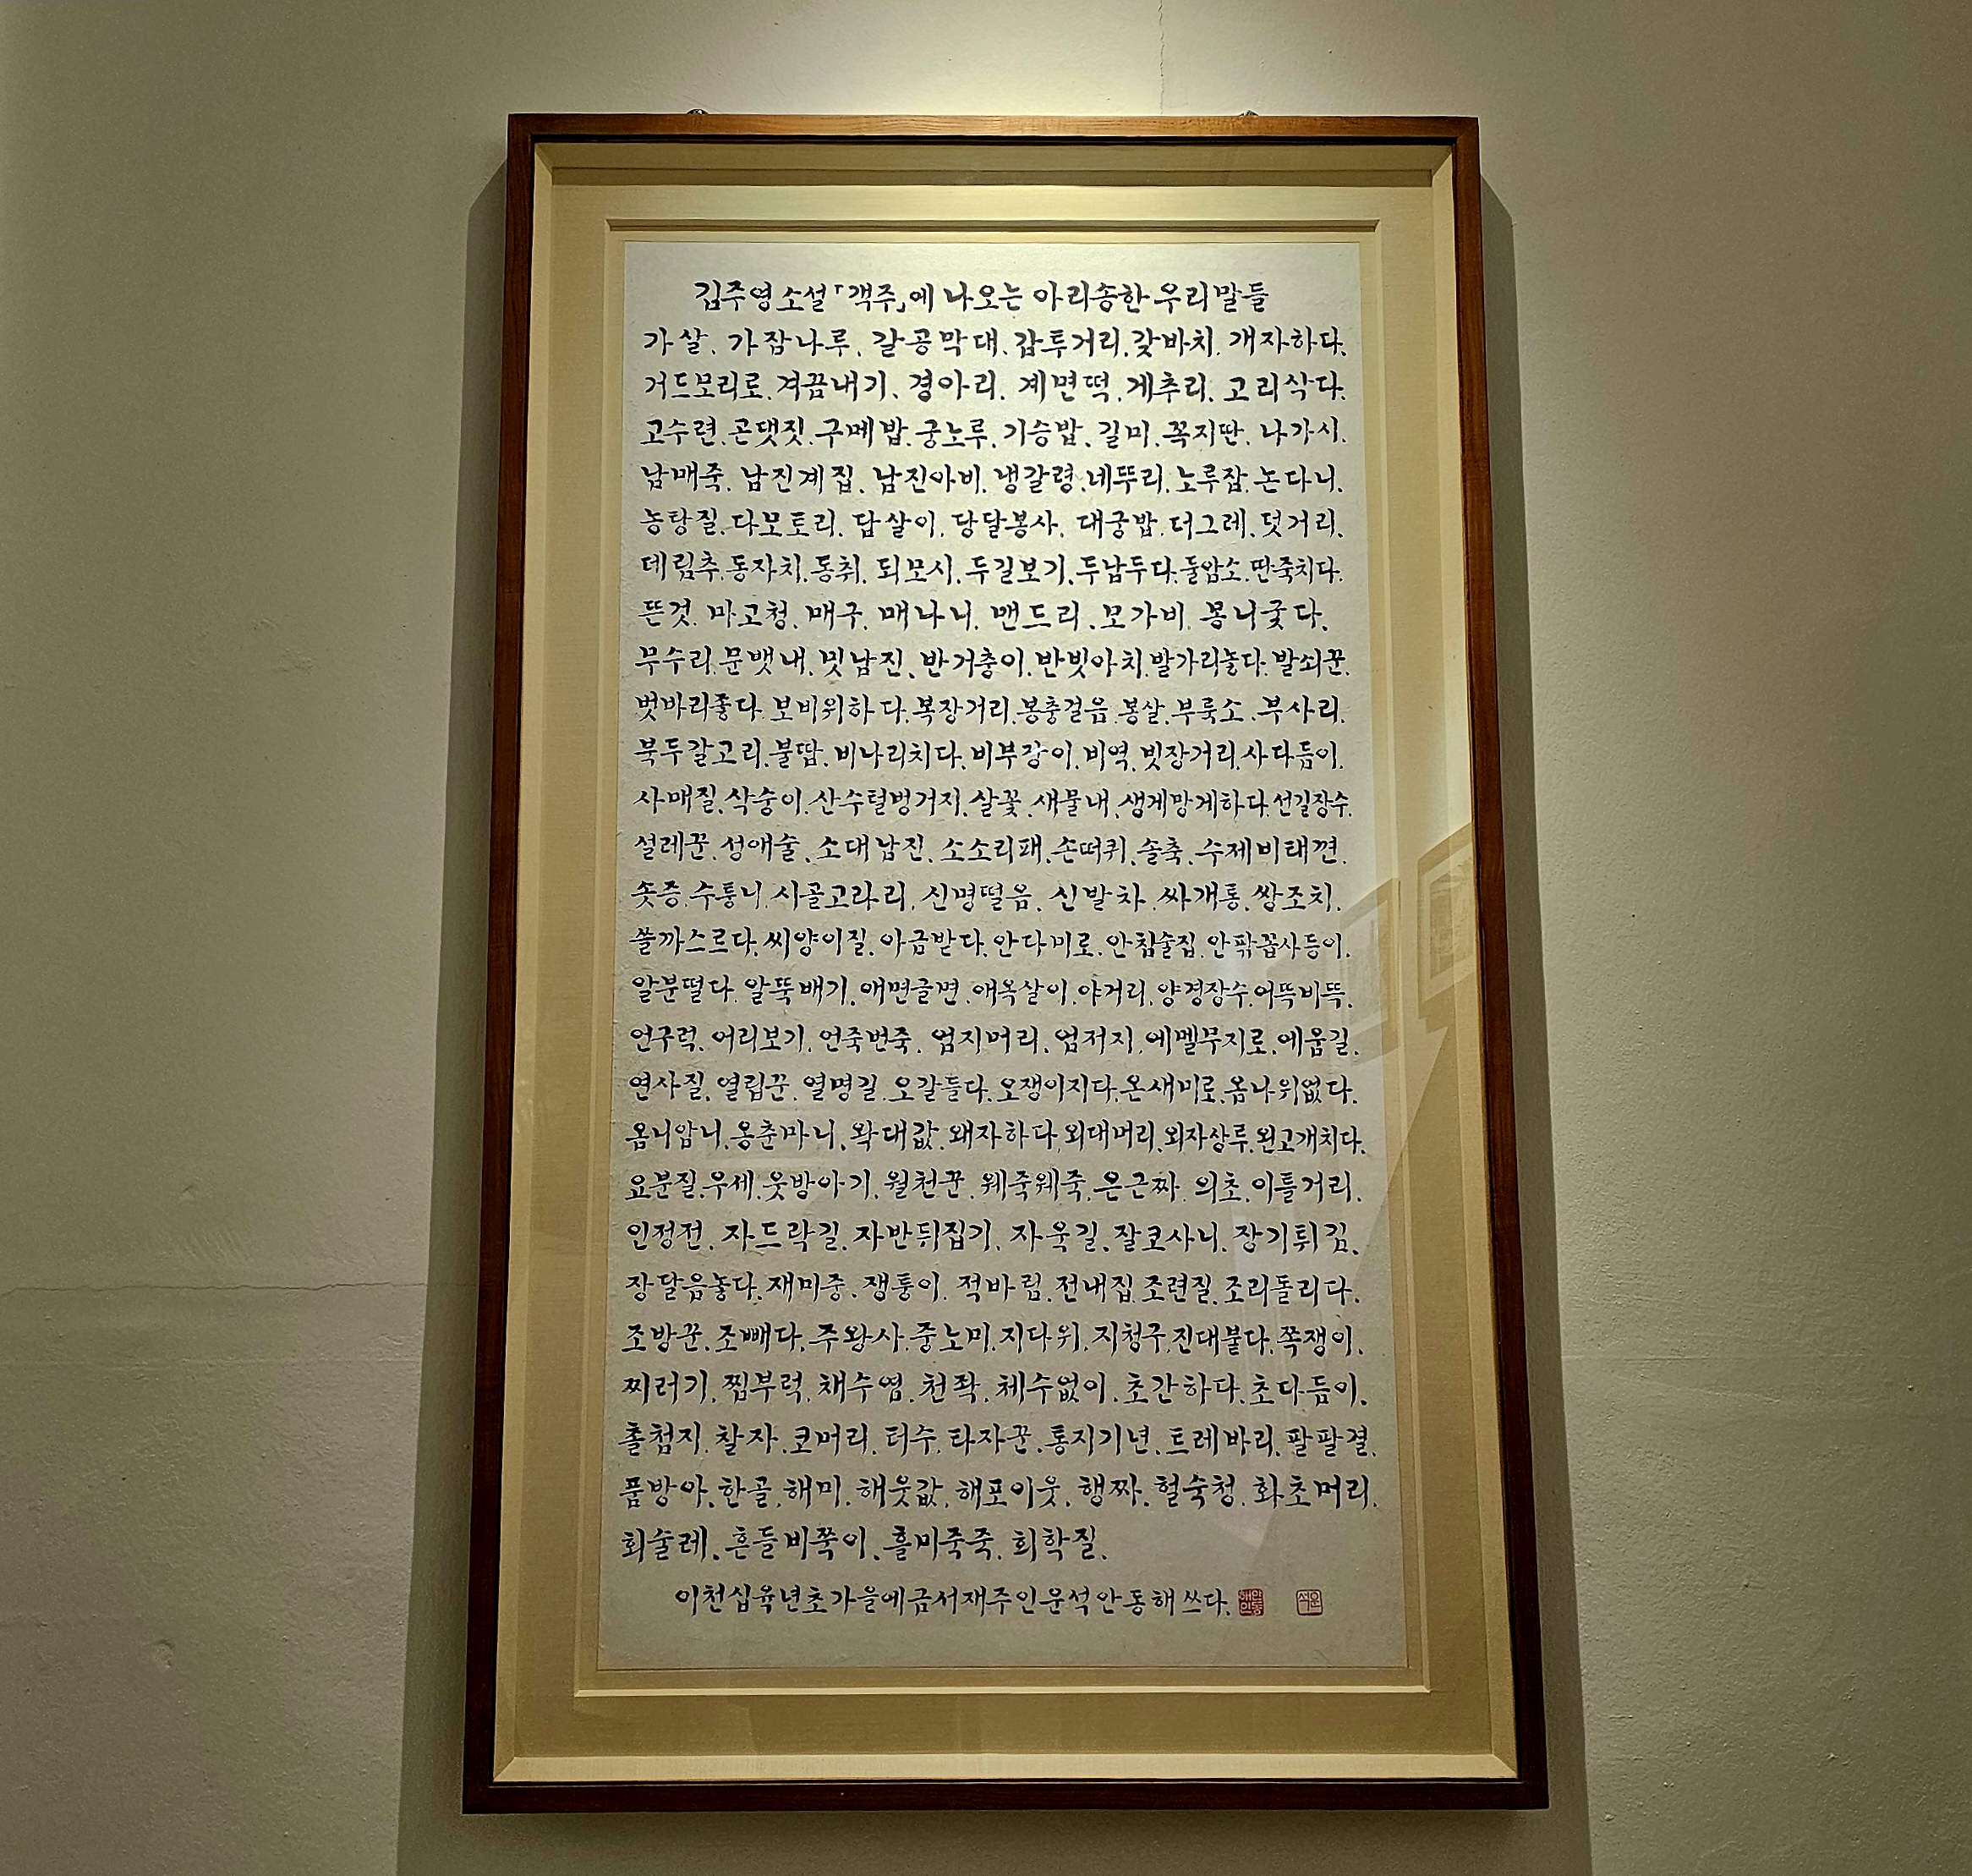 김주영소설「객주」에 나오는 아리송한 우리말들
가살. 가잠나루. 갈공막대. 갑투거리. 갖바치. 개자하다.
거드모리로. 겨끔내기. 경아리. 계면떡. 게추리. 고리삭다.
고수련. 곤댓짓. 구메밥. 궁노루. 기승밥. 길미. 꼭지딴. 나가시.
납매죽. 남진계집. 남진아비. 냉갈령. 네뚜리. 노루잠. 논다니.
농탕질. 다모토리. 답살이. 당달봉사. 대궁밥. 더그레. 덧거리.
데림추. 동자치. 동취. 되모시. 두길보기. 두남두다. 둘암소. 딴죽치다.
뜬것. 마고청. 매구. 매나니. 맨드리. 모가비. 몽니궂다.
무수리. 문뱃내. 밋남진. 반거충이. 반빗아치. 발가리놓다. 발쇠꾼.
벗바리좋다. 보비위하다. 복장거리. 봉충걸음. 봉살. 부룩소. 부사리.
북두갈고리. 불땁. 비나리치다. 비부장이. 비역. 빗장거리. 사다듬이.
사매질. 삭숭이. 산수털벙거지. 살꽃. 새물내. 생게망게하다. 선길장수.
설레꾼. 성애술. 소대남진. 소소리패. 손떠퀴. 솔축. 수제비태껸.
솟증. 수통니. 시골고라리. 신명떨음. 신발차. 싸개통. 쌍조치.
쓸까스르다. 씨양이질. 아금받다. 안다미로. 안침술집. 안팎꼽사등이.
알분떨다. 알뚝배기. 애면글면. 애옥살이. 야거리. 양경장수. 어뜩비뜩.
언구럭. 어리보기. 언죽번죽. 엄지머리. 엄저지. 에멜무지로. 에움길.
연사질. 열립꾼. 열명길. 오갈들다. 오쟁이지다. 온새미로. 옴나위없다.
옴니암니. 옹춘마니. 왁대값. 왜자하다. 외대머리. 외자상투. 왼고개치다.
요분질. 우세. 웃방아기. 월천꾼. 웨죽웨죽. 은근짜. 의초. 이틀거리.
인정전. 자드락길. 자반뒤집기. 자욱길. 잘코사니. 장기튀김.
장달음놓다. 재미중. 쟁퉁이. 적바림. 전내집. 조련질. 조리돌리다.
조방꾼. 조빼다. 주왕사. 중노미. 지다위. 지청구. 진대붙다. 쪽쟁이.
찌러기. 찜부럭. 채수염. 천좍. 체수없이. 초간하다. 초다듬이.
촐첨지. 찰자. 코머리. 터수. 타자꾼. 통지기년. 트레바리. 팔팔결.
품방아. 한골. 해미. 해웃값. 해포이웃. 행짜. 혈숙청. 화초머리.
회술레. 흔들비쭉이. 흘미죽죽. 회학질.
이천십육년초가을에금서재주인운석안동해쓰다.